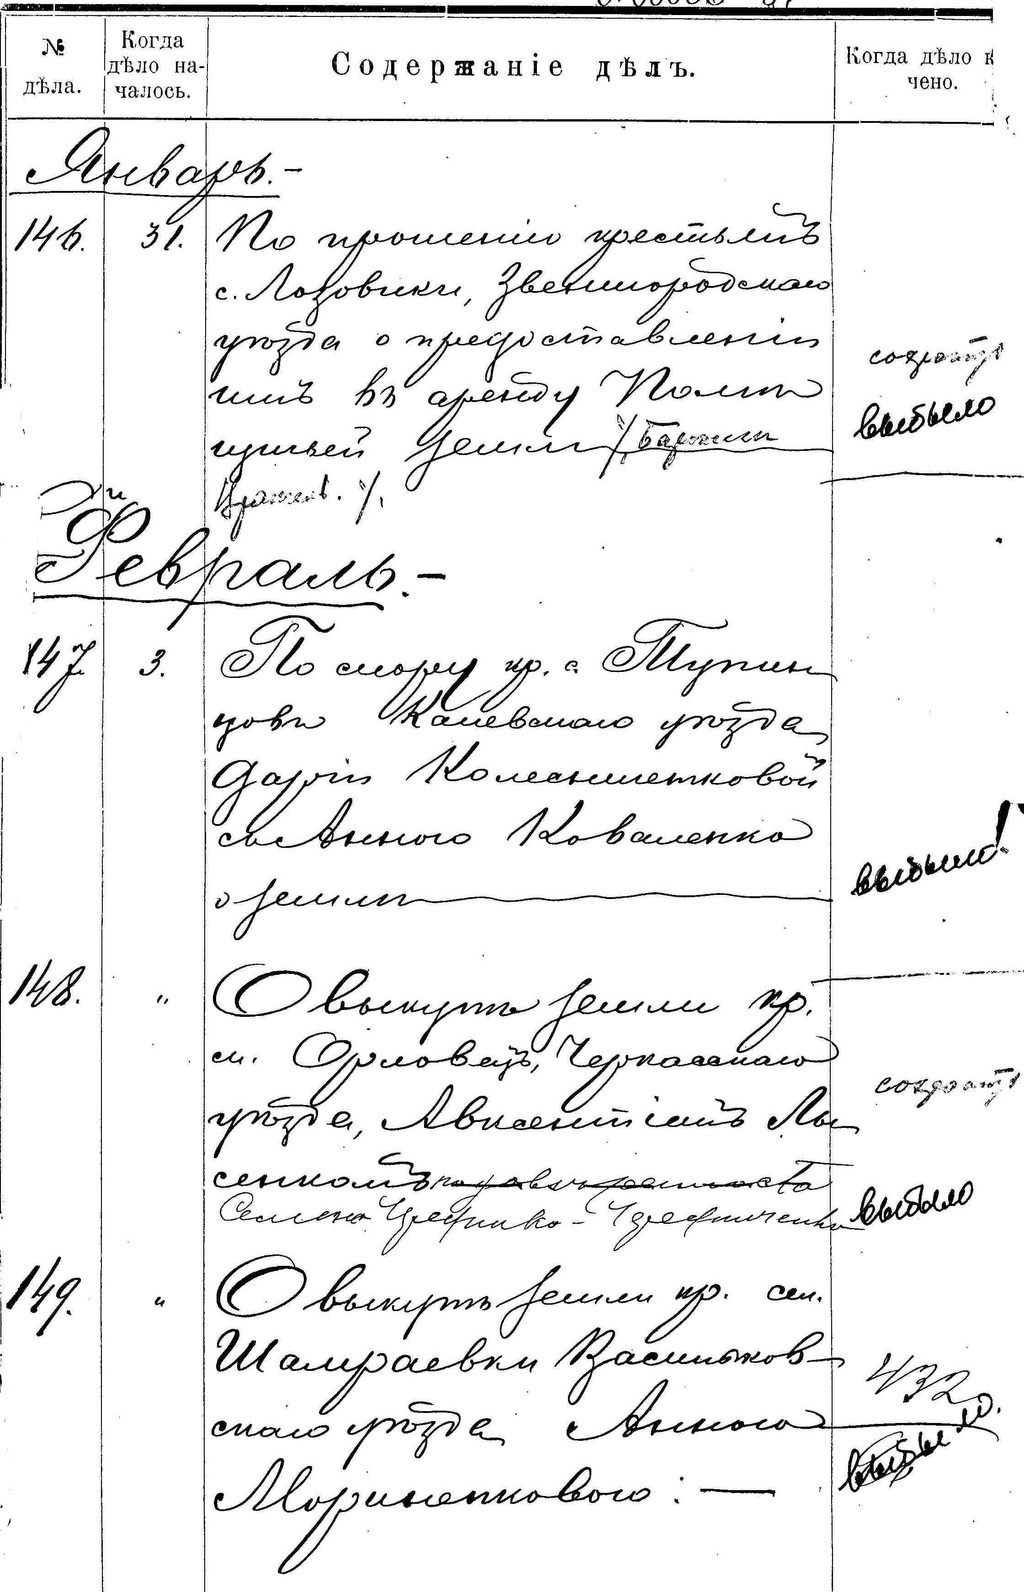 № дѣла.
Когда дѣло на-
чалось.
Содержаніе дѣлъ.
Когда дѣло к
чено.
Январь.-
146. 31. По прошенію крестьянъ
с. Лозовики, Звенигородскаго
уѣзда о предоставленіи
имъ въ аренду Помѣ
щичьей земли
выбыло
Февраль.-
147. 3. По спору кр. с. Тупин
цовъ Каневскаго уѣзда
Даріи Колесниченковой
съ Анною Коваленко
о земли
выбыло!
148. „ О выкупѣ земли кр.
м. Орловецъ, Черкасскаго
уѣзда, Авксентіемъ Лы
сенкомъ
Семена
выбыло
149. „ О выкупѣ земли кр. сел.
Шамраевки Васильков-
скаго уѣзда Анною
Мориненковою. —
432
выбыло.